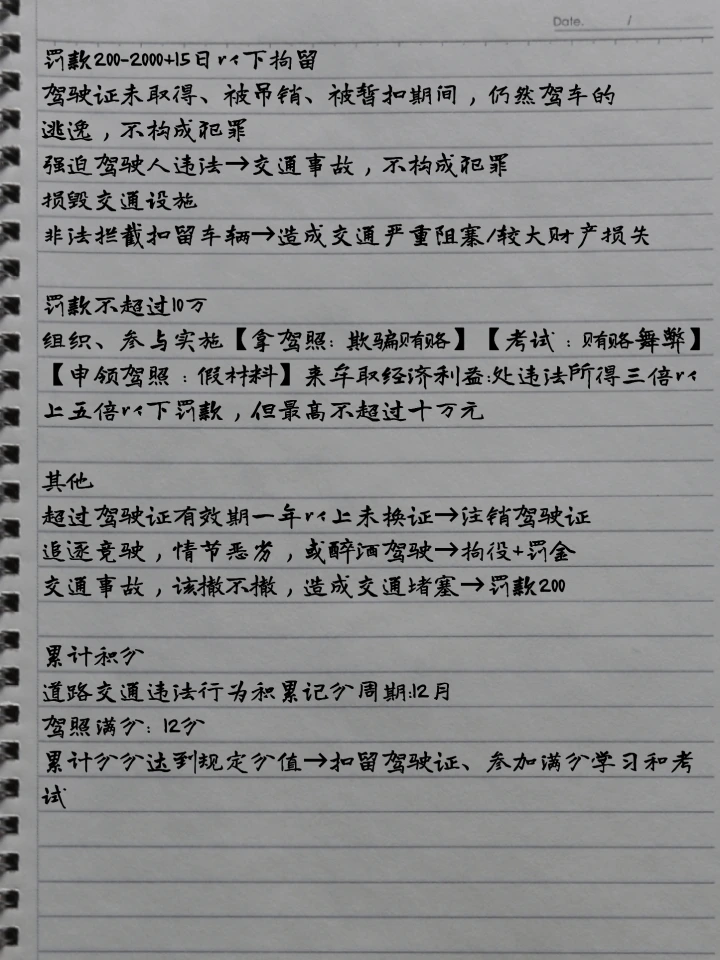 Date. /
罚款200-2000+15日以下拘留
驾驶证未取得、被吊销、被暂扣期间，仍然驾车的
逃逸，不构成犯罪
强迫驾驶人违法→交通事故，不构成犯罪
损毁交通设施
非法拦截扣留车辆→造成交通严重阻塞/较大财产损失
罚款不超过10万
组织、参与实施【拿驾照：欺骗贿赂】【考试：贿赂舞弊】
【申领驾照：假材料】来牟取经济利益:处违法所得三倍以
上五倍以下罚款，但最高不超过十万元
其他
超过驾驶证有效期一年以上未换证→注销驾驶证
追逐竞驶，情节恶劣，或醉酒驾驶→拘役+罚金
交通事故，该撤不撤，造成交通堵塞→罚款200
累计积分
道路交通违法行为积累记分周期:12月
驾照满分：12分
累计分分达到规定分值→扣留驾驶证、参加满分学习和考
试